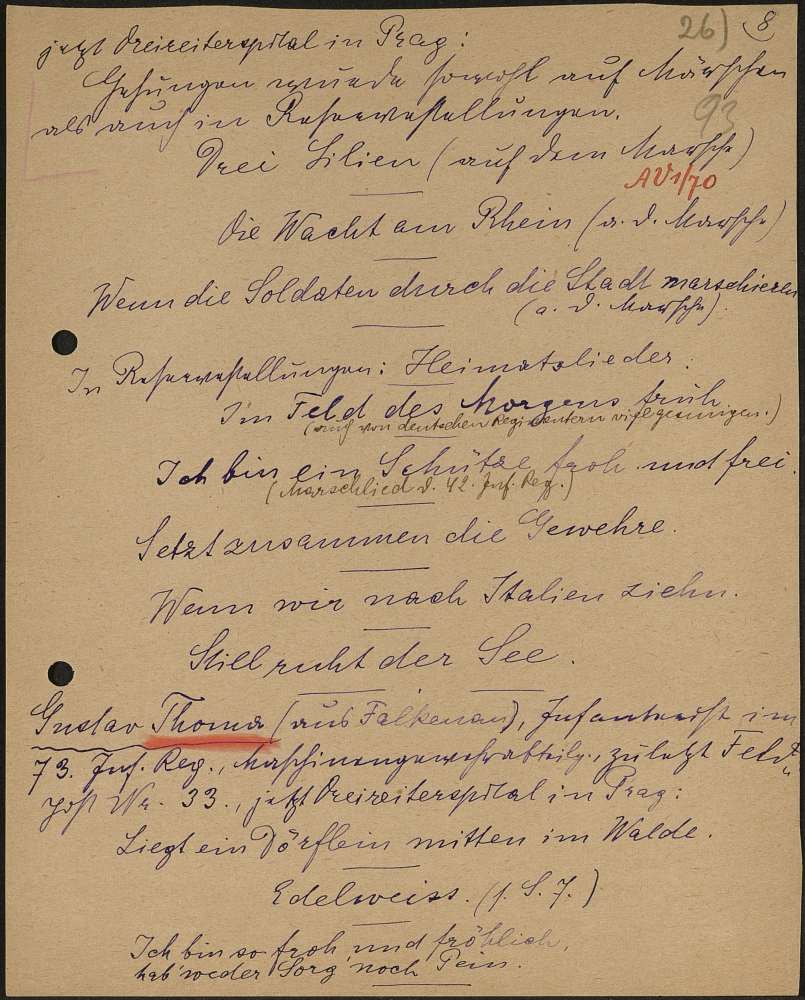 26) 8
jetzt Dreireiterspital in Prag:
Gesungen wurde sowohl auf Märschen
93
als auch in Reservestellungen.
Drei Lilien (auf dem Marsche)
AV1/70
Die Wacht am Rhein (a. d. Marsche)
Wenn die Soldaten durch die Stadt marschieren
(a. d. Marsche).
In Reservestellungen: Heimatslieder.
Im Feld des Morgens früh.
(auch von deutschen Regimentern viel gesungen.)
Ich bin ein Schütze froh und frei.
(Marschlied d. 42. Inf. Reg.)
Setzt zusammen die Gewehre.
Wenn wir nach Italien ziehn.
Still ruht der See.
Gustav Thoma (aus Falkenau), Infanterist im
73. Inf. Reg., Maschinengewehrabteilg., zuletzt Feld-
post Nr. 33., jetzt Dreireiterspital in Prag:
Liegt ein Dörflein mitten im Walde.
Edelweiss. (s. S. 7.)
Ich bin so froh und fröhlich,
hab' weder Sorg noch Pein.